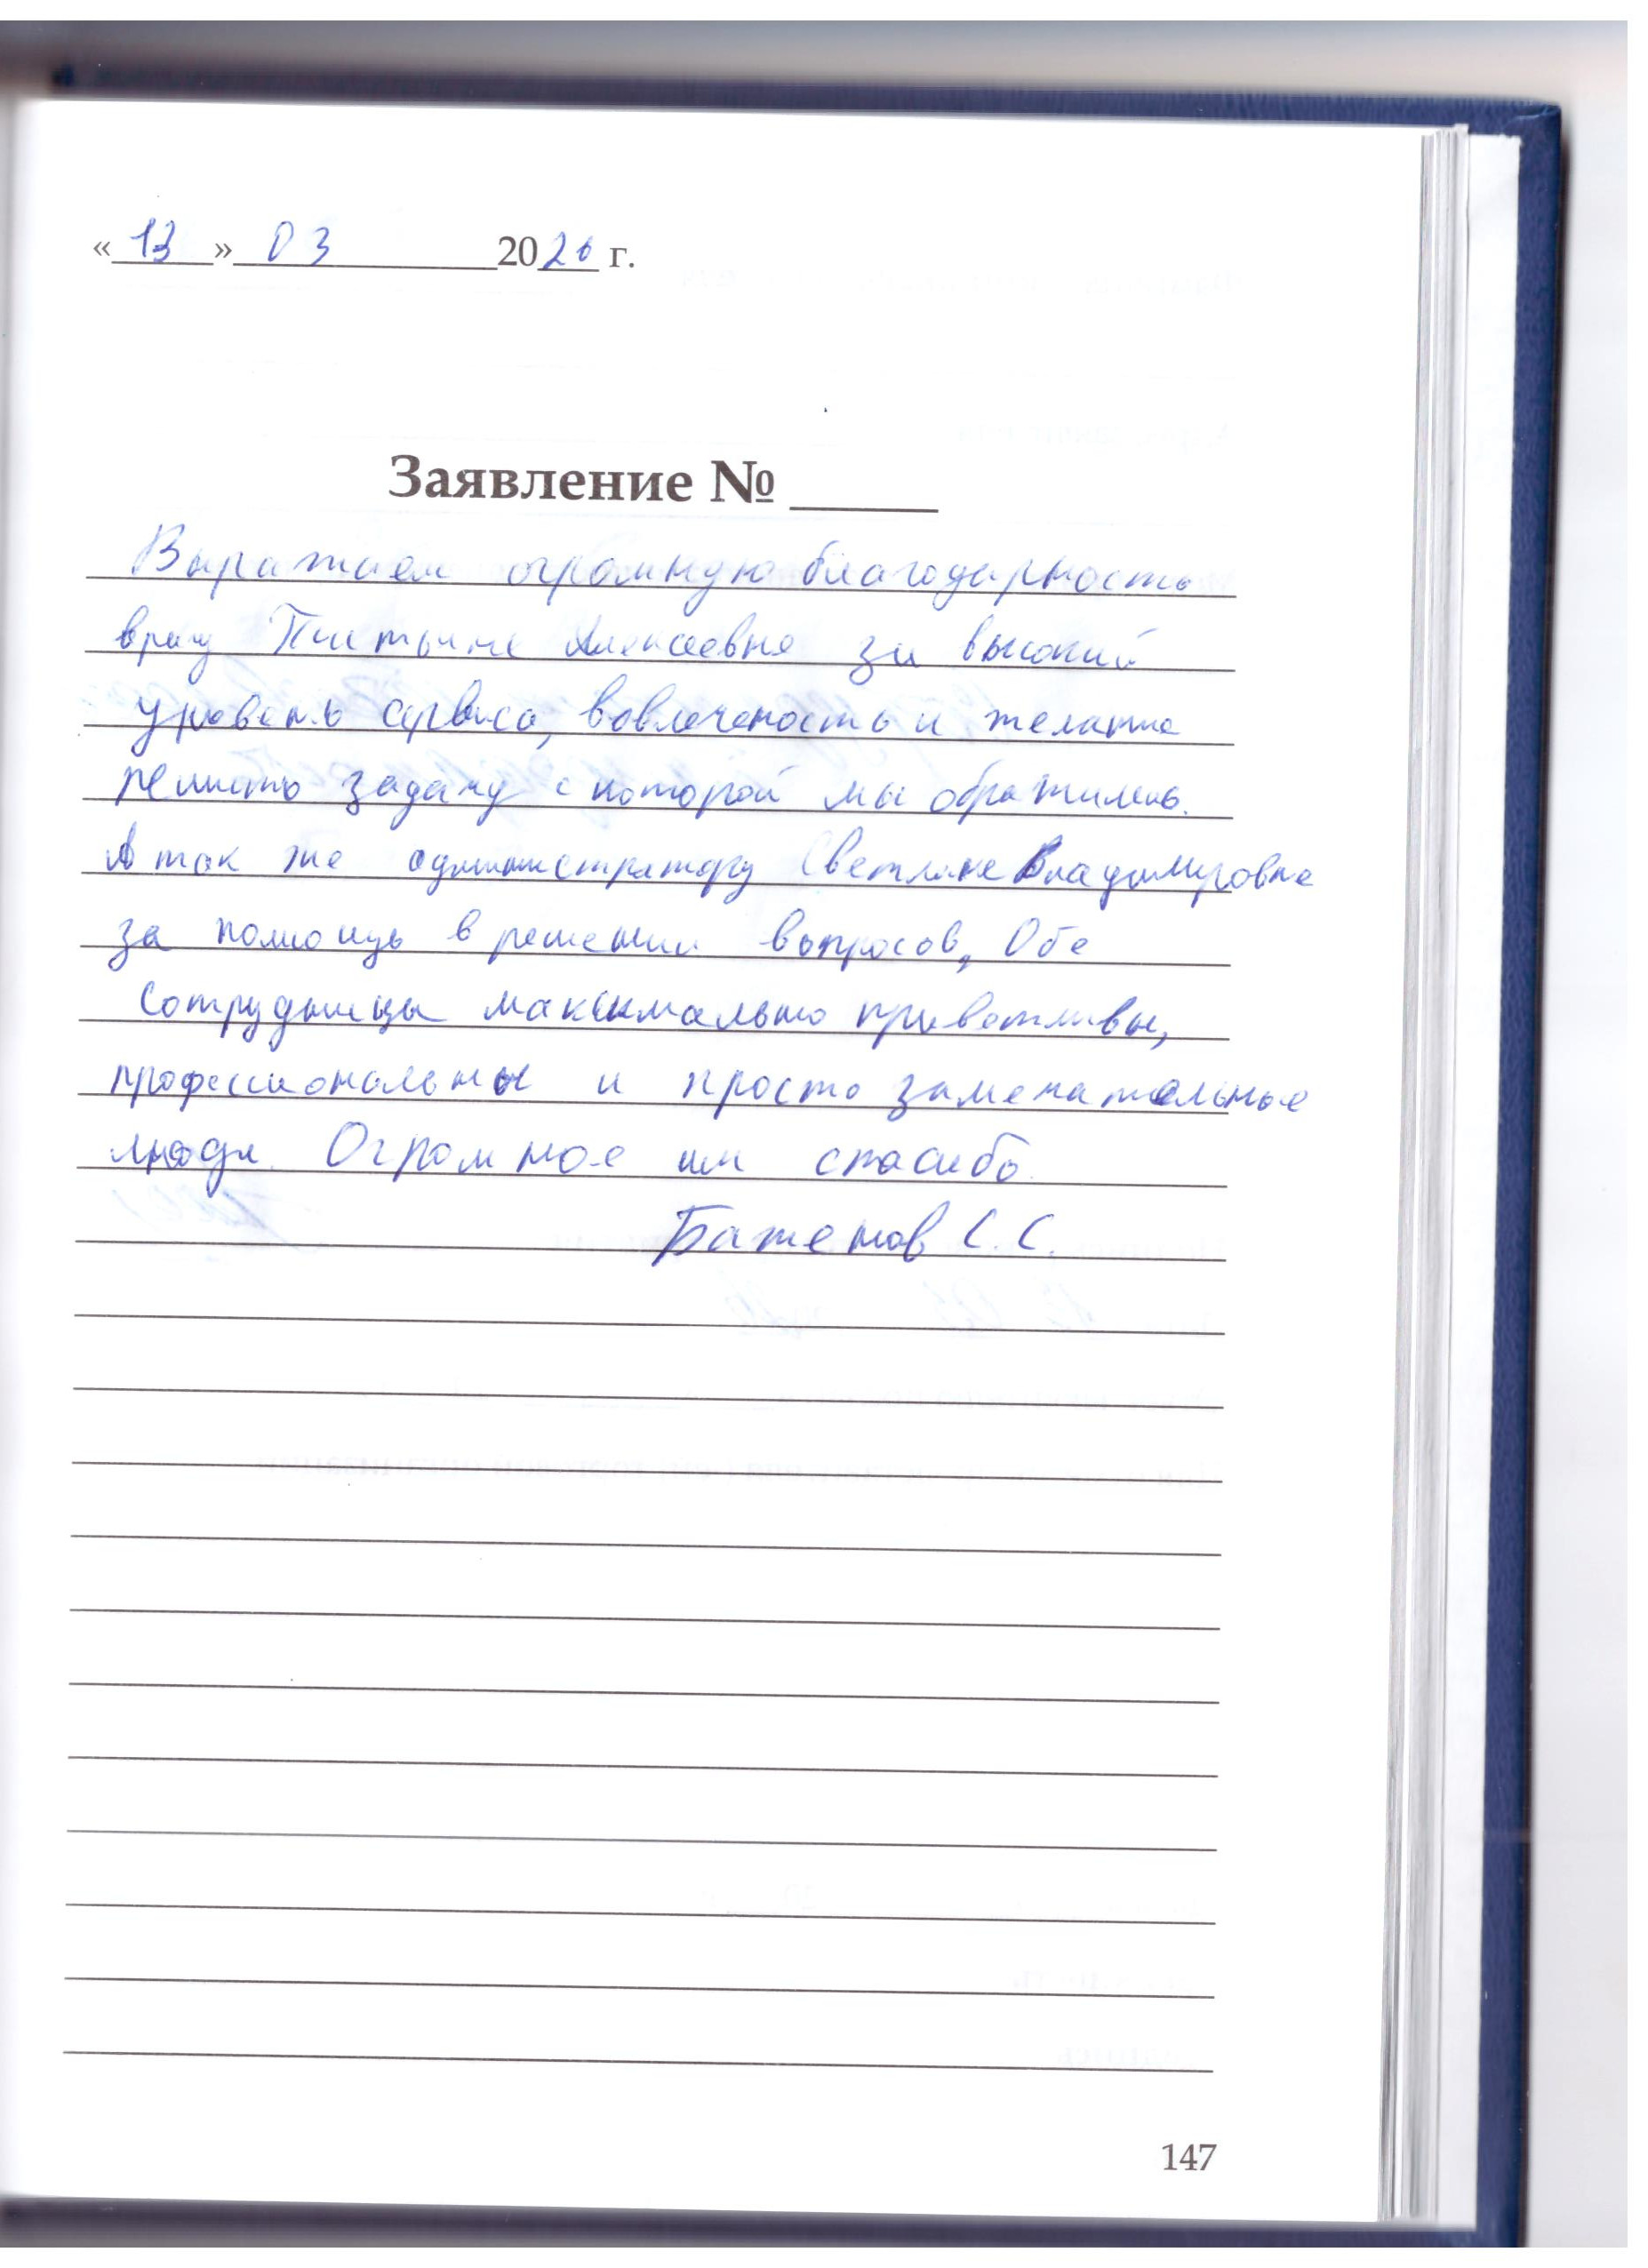 «13» 03 2026 г.
Заявление № ____
Выражаем огромную благодарность
врачу Алексеевне за высокий
уровень сервиса, вовлеченость и желание
решить задачу с которой мы обратились.
А так же администратору Светлане Владимировне
за помощь в решении вопросов, Обе
сотрудницы максимально приветливы,
профессиональны и просто замечательные
люди. Огромное им спасибо
Баженов С. С.
147